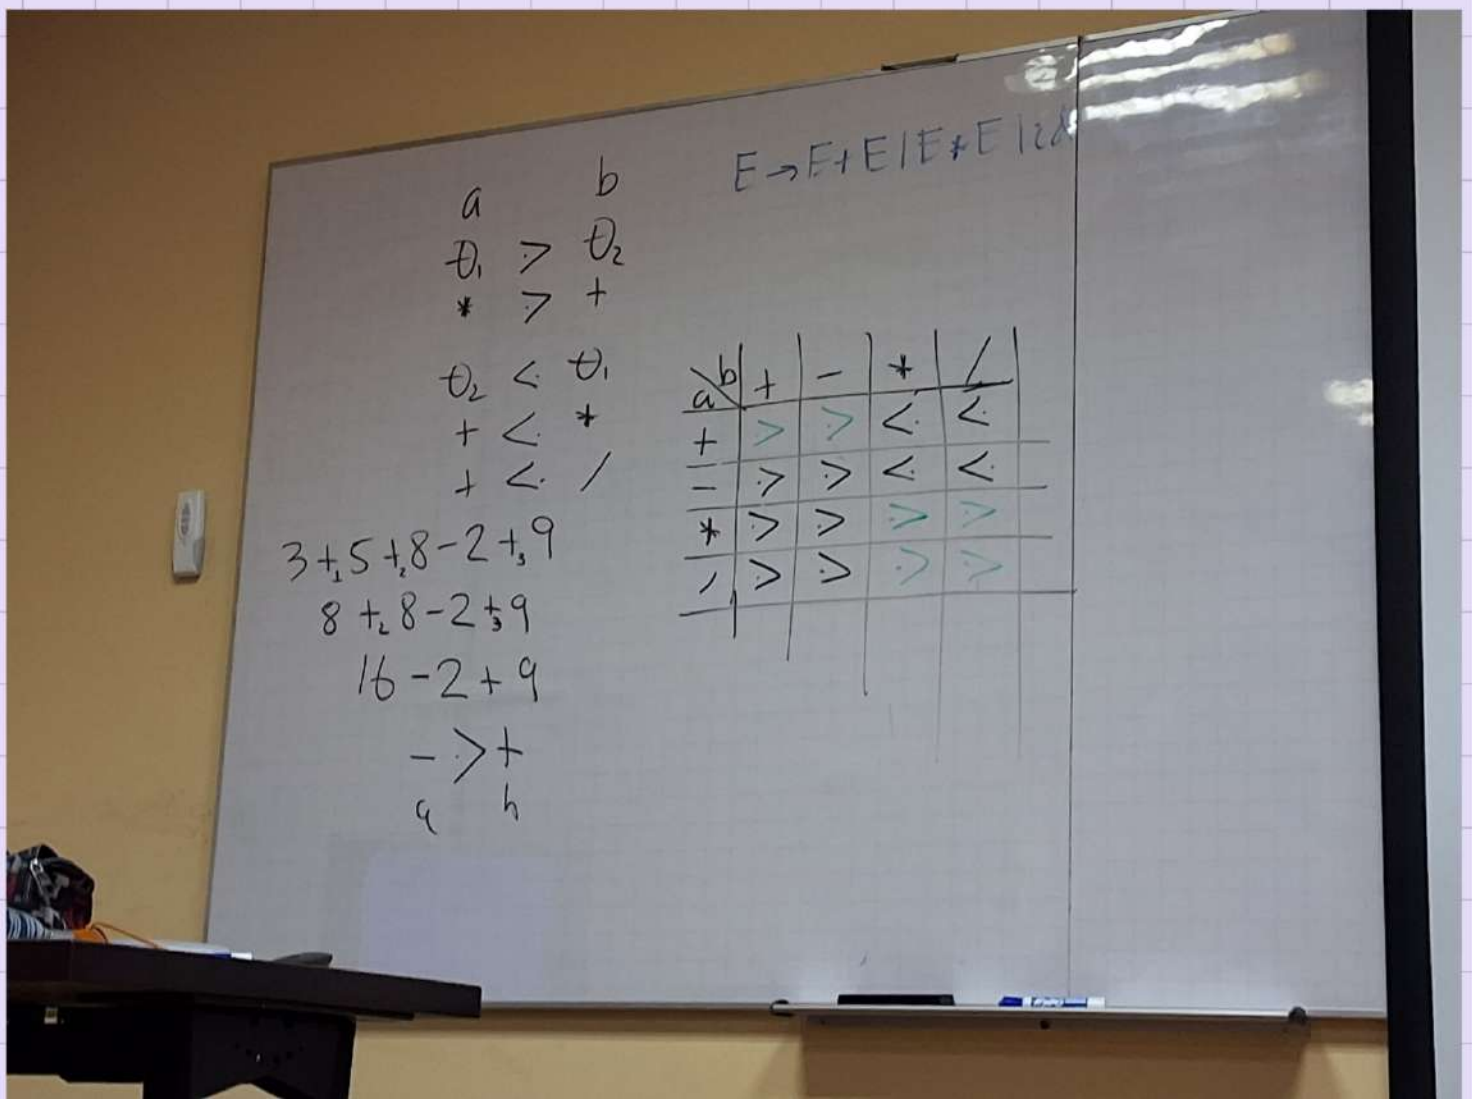 a b
θ₁ ⋗ θ₂
* ⋗ +
θ₂ ⋖ θ₁
+ ⋖ *
+ ⋖ /
3 +₁ 5 +₂ 8 - 2 +₃ 9
8 +₂ 8 - 2 +₃ 9
16 - 2 + 9
- ⋗ +
a b
E → E + E | E * E | id
a\b + - * /
+ ⋗ ⋗ ⋖ ⋖
- ⋗ ⋗ ⋖ ⋖
* ⋗ ⋗ ⋗ ⋗
/ ⋗ ⋗ ⋗ ⋗